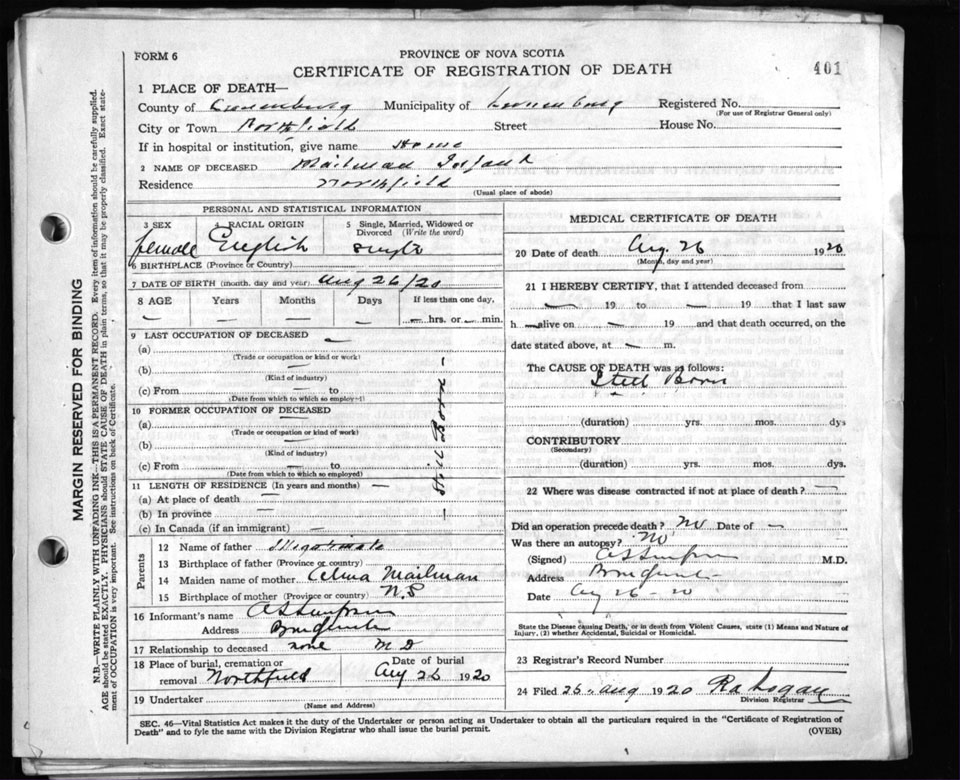 FORM 6
PROVINCE OF NOVA SCOTIA
CERTIFICATE OF REGISTRATION OF DEATH
401
1 PLACE OF DEATH—
County of Lunenburg Municipality of Lunenburg Registered No.
(For use of Registrar General only)
City or Town Northfield Street House No.
If in hospital or institution, give name Home
2 NAME OF DECEASED Mailman Infant
Residence Northfield
(Usual place of abode)
PERSONAL AND STATISTICAL INFORMATION
3 SEX 4 RACIAL ORIGIN 5 Single, Married, Widowed or Divorced (Write the word)
female English single
6 BIRTHPLACE (Province or Country)
7 DATE OF BIRTH (month, day and year) Aug 26/20
8 AGE Years Months Days If less than one day,
— — — — — hrs. or — min.
9 LAST OCCUPATION OF DECEASED —
(a)
(Trade or occupation or kind of work)
(b) —
(Kind of industry)
(c) From — to
(Date from which to which so employed)
10 FORMER OCCUPATION OF DECEASED
(a) —
(Trade or occupation or kind of work)
(b) —
(Kind of industry)
(c) From — to
(Date from which to which so employed)
11 LENGTH OF RESIDENCE (In years and months) —
(a) At place of death —
(b) In province —
(c) In Canada (if an immigrant) —
— Still Born —
Parents
12 Name of father Illegitimate
13 Birthplace of father (Province or country)
14 Maiden name of mother Celma Mailman
15 Birthplace of mother (Province or country) N.S
16 Informant's name
Address
17 Relationship to deceased none M D
18 Place of burial, cremation or removal Northfield
Date of burial Aug 26 1920
19 Undertaker
(Name and Address)
MEDICAL CERTIFICATE OF DEATH
20 Date of death Aug 26 1920
(Month, day and year)
21 I HEREBY CERTIFY, that I attended deceased from
— 19 to — 19 that I last saw
h — alive on — 19 and that death occurred, on the
date stated above, at — m.
The CAUSE OF DEATH was as follows:
Still Born
(duration) yrs. mos. dys
CONTRIBUTORY
(Secondary)
(duration) yrs. mos. dys.
22 Where was disease contracted if not at place of death? —
Did an operation precede death? No Date of —
Was there an autopsy? No
(Signed) M.D.
Address
Date Aug 26 - 20
State the Disease causing Death, or in death from Violent Causes, state (1) Means and Nature of
Injury, (2) whether Accidental, Suicidal or Homicidal.
23 Registrar's Record Number
24 Filed 26, Aug 1920 Ra Logan
Division Registrar
SEC. 46—Vital Statistics Act makes it the duty of the Undertaker or person acting as Undertaker to obtain all the particulars required in the "Certificate of Registration of
Death" and to fyle the same with the Division Registrar who shall issue the burial permit.
(OVER)
MARGIN RESERVED FOR BINDING
N.B.—WRITE PLAINLY WITH UNFADING INK—THIS IS A PERMANENT RECORD. Every item of information should be carefully supplied.
AGE should be stated EXACTLY. PHYSICIANS should STATE CAUSE OF DEATH in plain terms, so that it may be properly classified. Exact state-
ment of OCCUPATION is very important. See instructions on back of Certificate.